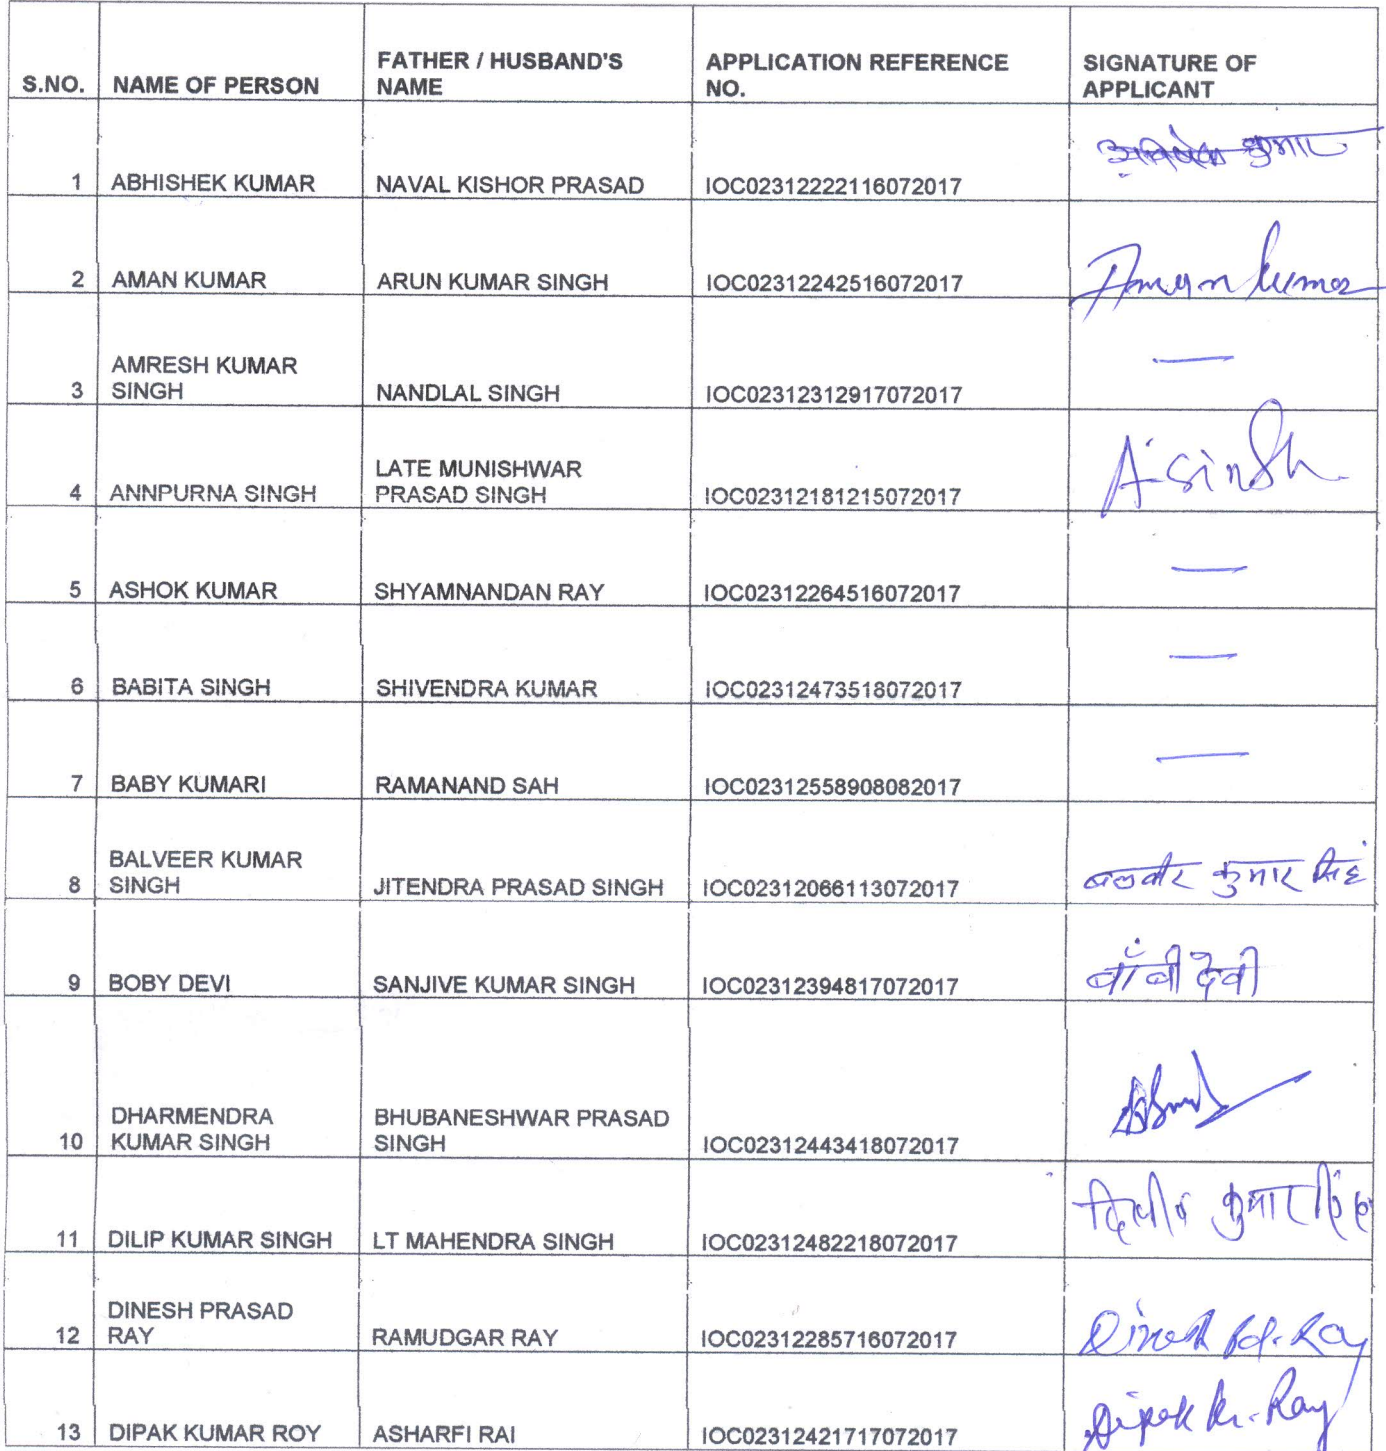 S.NO. NAME OF PERSON FATHER / HUSBAND'S NAME APPLICATION REFERENCE NO. SIGNATURE OF APPLICANT
1 ABHISHEK KUMAR NAVAL KISHOR PRASAD IOC02312222116072017 अभिषेक कुमार
2 AMAN KUMAR ARUN KUMAR SINGH IOC02312242516072017 Aman kumar
3 AMRESH KUMAR SINGH NANDLAL SINGH IOC02312312917072017 —
4 ANNPURNA SINGH LATE MUNISHWAR PRASAD SINGH IOC02312181215072017 A. Singh
5 ASHOK KUMAR SHYAMNANDAN RAY IOC02312264516072017 —
6 BABITA SINGH SHIVENDRA KUMAR IOC02312473518072017 —
7 BABY KUMARI RAMANAND SAH IOC02312558908082017 —
8 BALVEER KUMAR SINGH JITENDRA PRASAD SINGH IOC02312066113072017 बलवीर कुमार सिंह
9 BOBY DEVI SANJIVE KUMAR SINGH IOC02312394817072017 बॉबी देवी
10 DHARMENDRA KUMAR SINGH BHUBANESHWAR PRASAD SINGH IOC02312443418072017
11 DILIP KUMAR SINGH LT MAHENDRA SINGH IOC02312482218072017 दिलीप कुमार सिंह
12 DINESH PRASAD RAY RAMUDGAR RAY IOC02312285716072017 Dinesh Pd. Ray
13 DIPAK KUMAR ROY ASHARFI RAI IOC02312421717072017 Dipak Kr. Ray